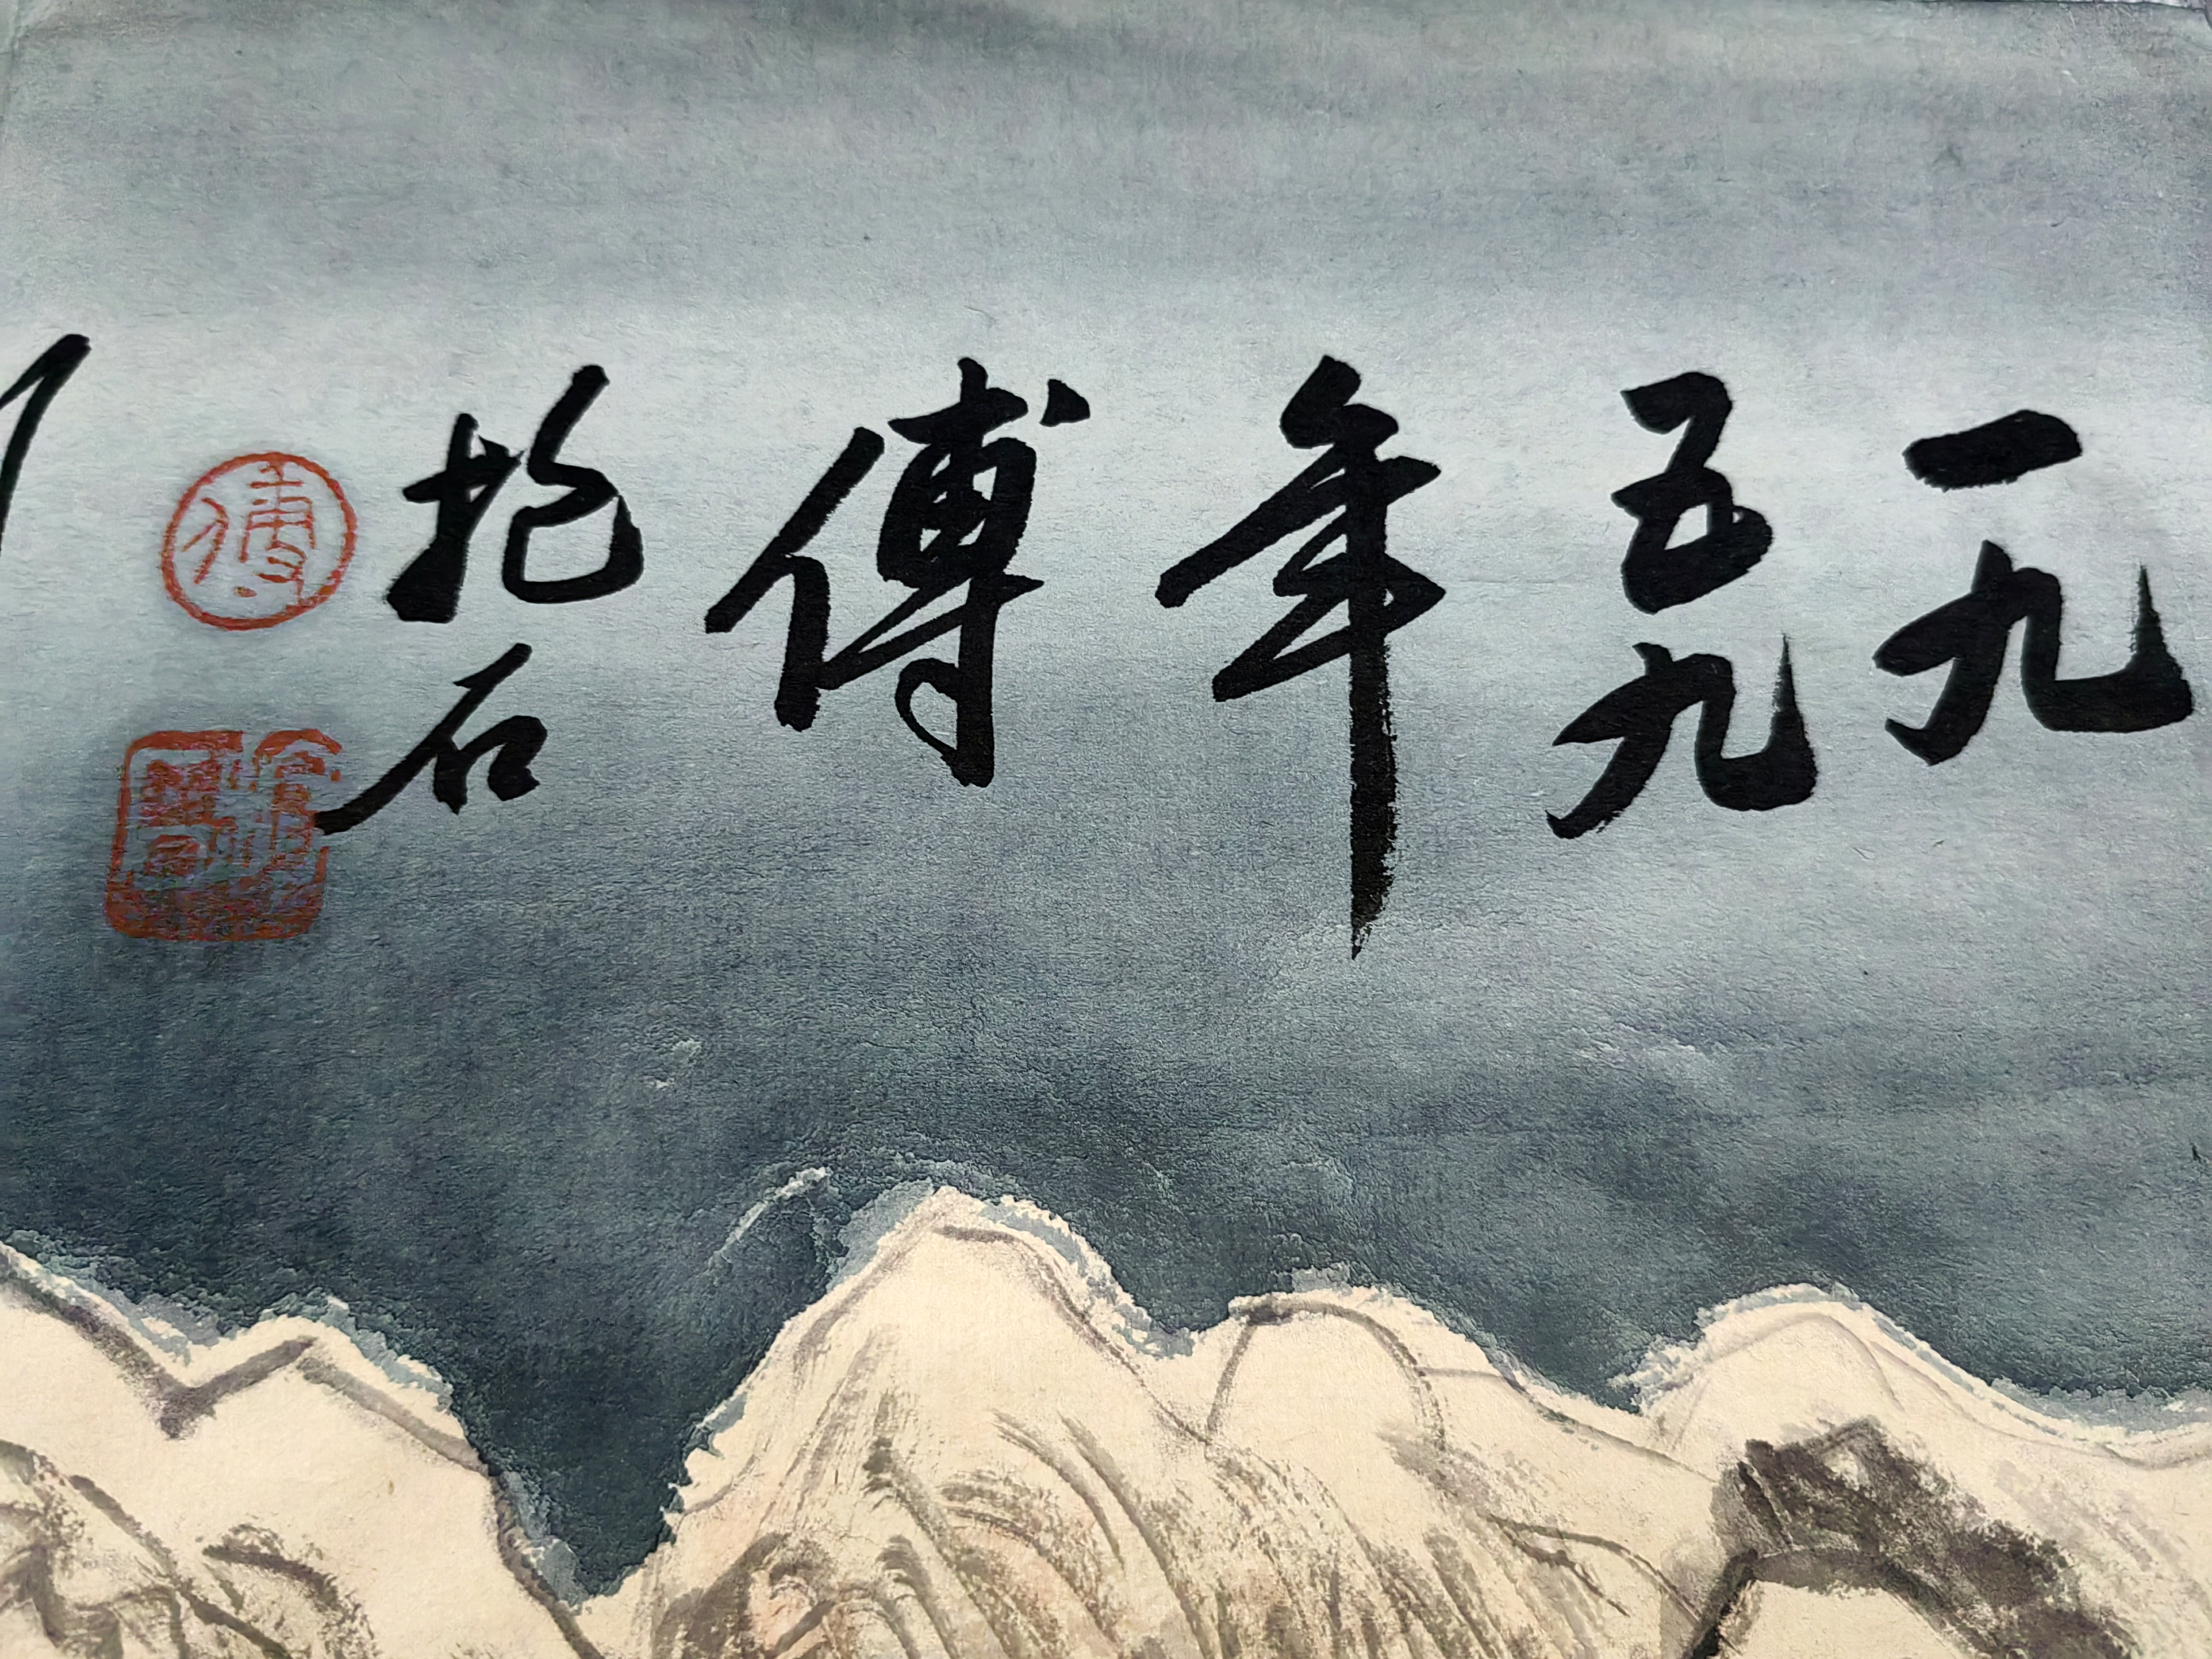 一九
五九
年
傅
抱石
傅